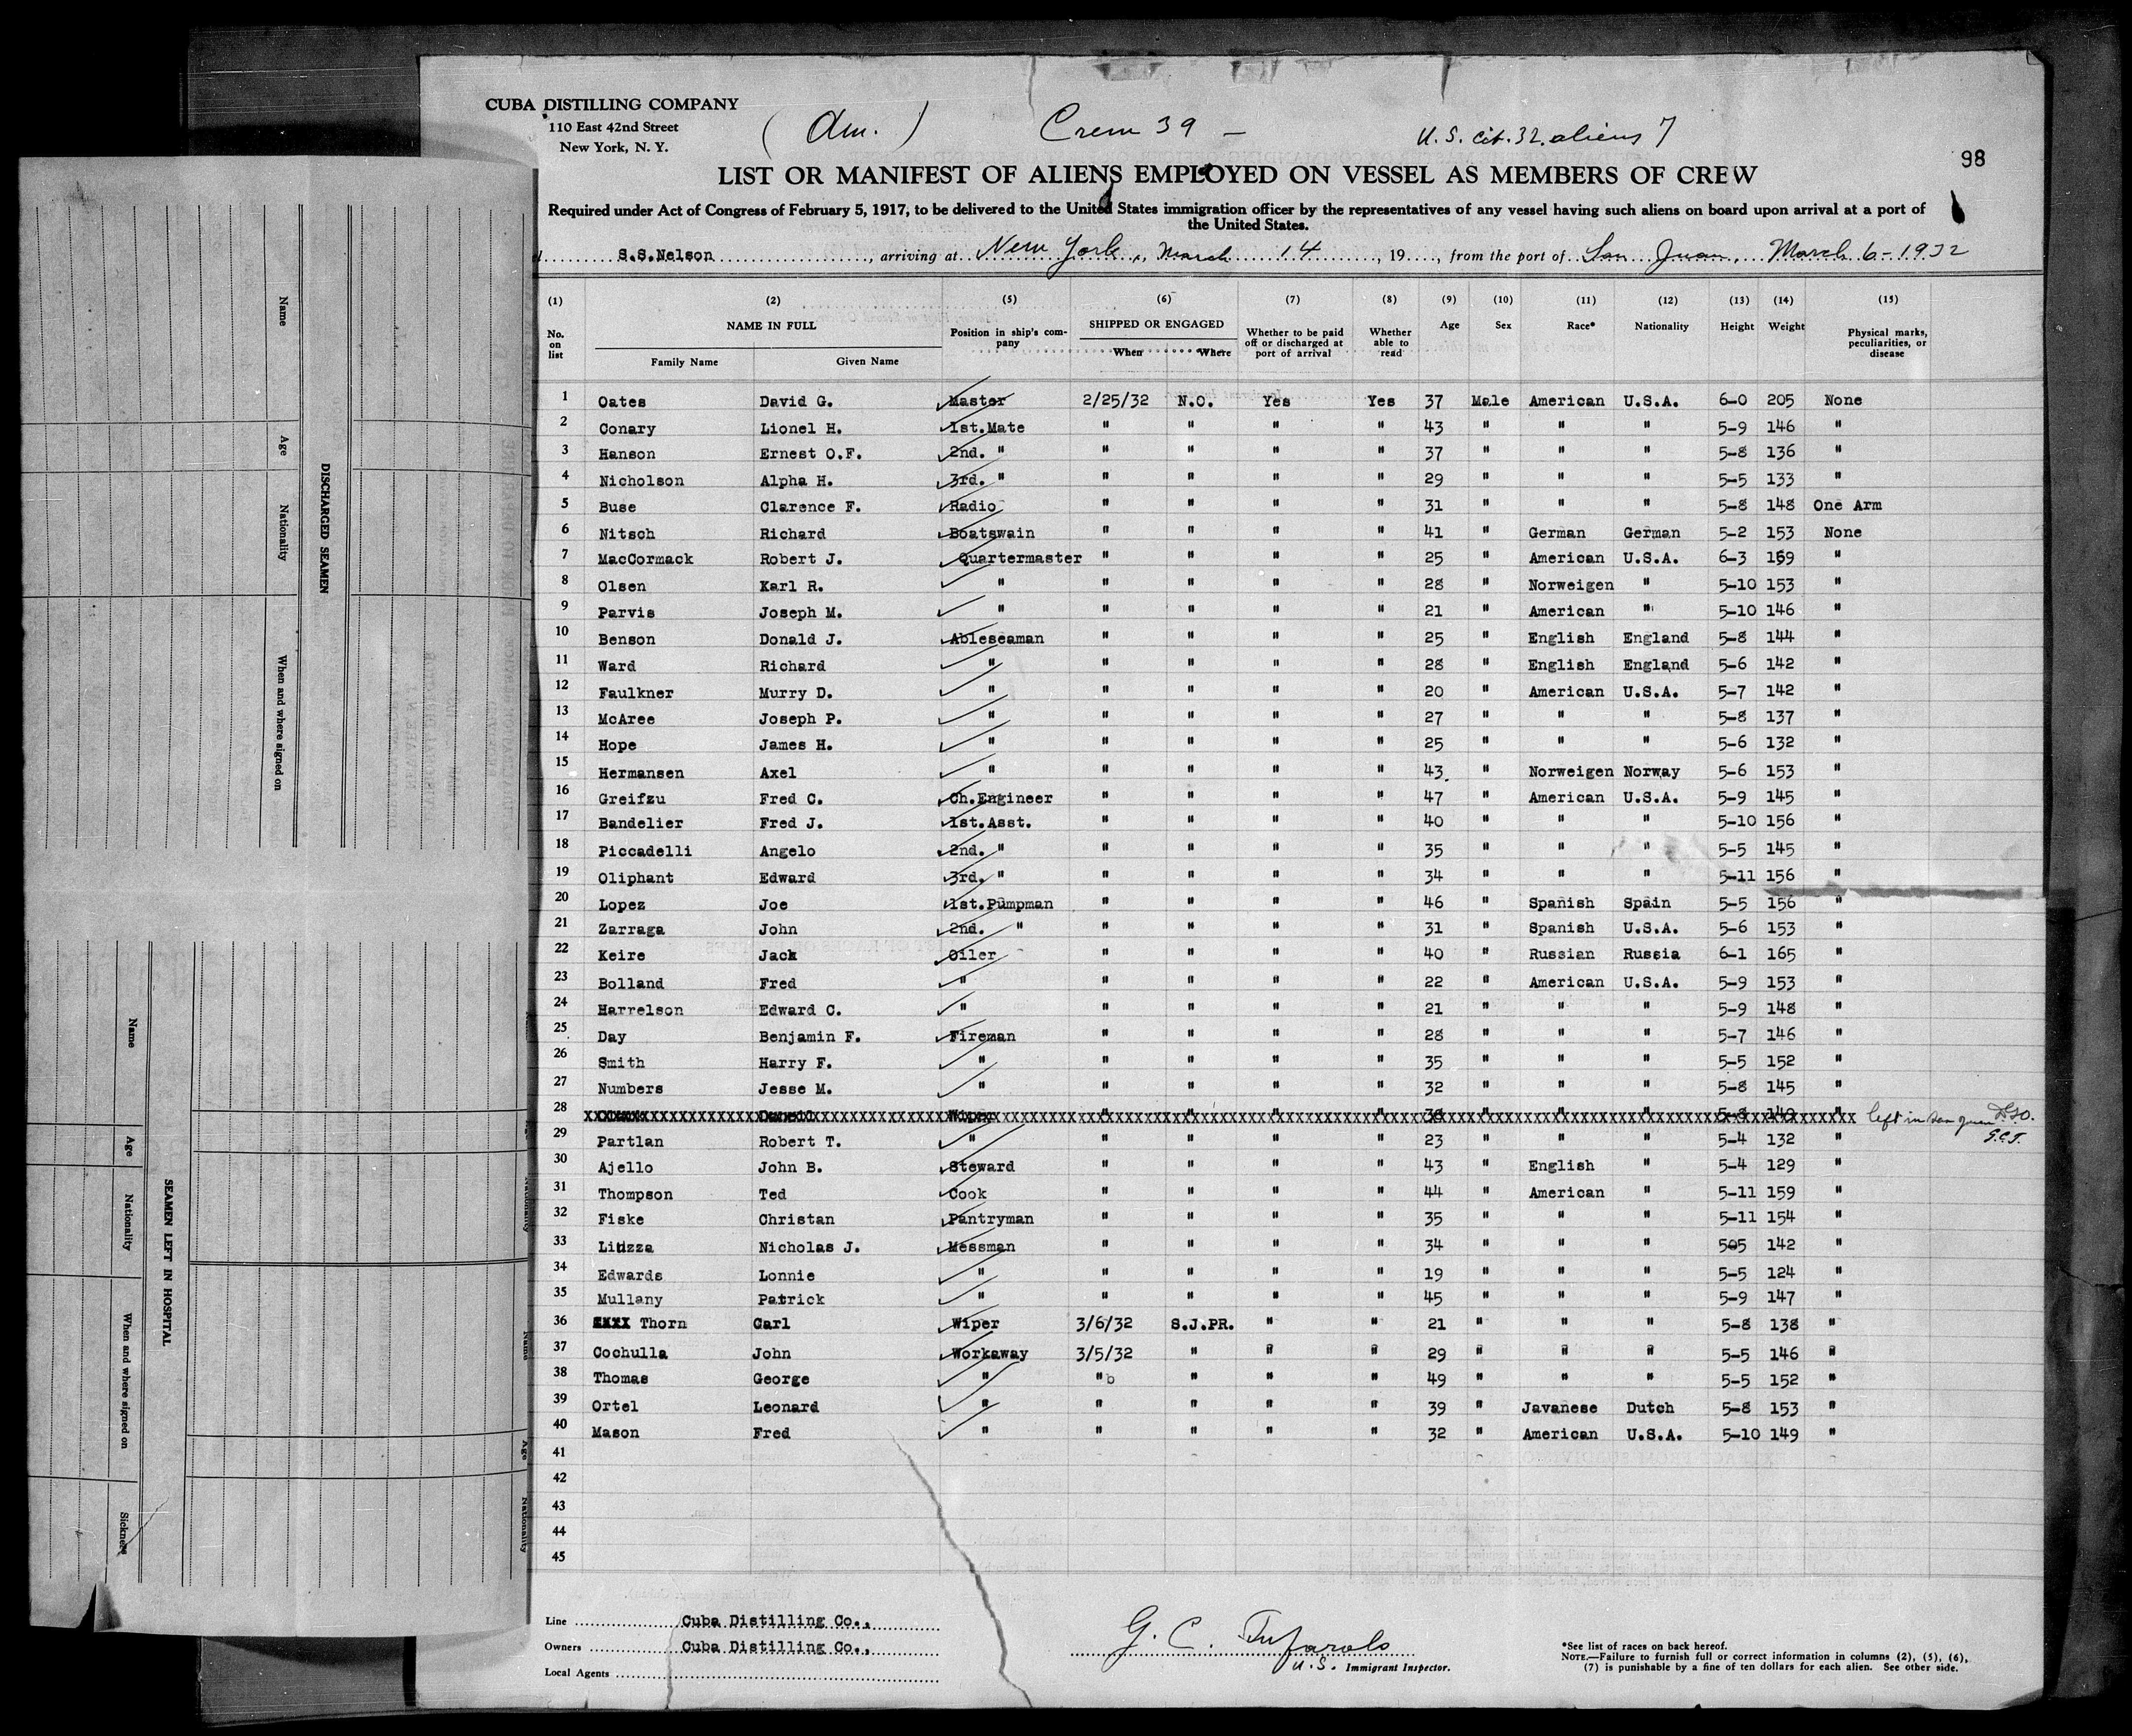 CUBA DISTILLING COMPANY
110 East 42nd Street
New York, N. Y.
( Am. ) Crew 39 — U. S. cit. 32. aliens 7
98
LIST OR MANIFEST OF ALIENS EMPLOYED ON VESSEL AS MEMBERS OF CREW
Required under Act of Congress of February 5, 1917, to be delivered to the United States immigration officer by the representatives of any vessel having such aliens on board upon arrival at a port of
the United States.
S.S.Nelson, arriving at New York, March 14, 19, from the port of San Juan, March 6-1932
(1) (2) (5) (6) (7) (8) (9) (10) (11) (12) (13) (14) (15)
No. on list NAME IN FULL Family Name Given Name Position in ship's company SHIPPED OR ENGAGED When Where Whether to be paid off or discharged at port of arrival Whether able to read Age Sex Race* Nationality Height Weight Physical marks, peculiarities, or disease
1 Oates David G. Master 2/25/32 N.O. Yes Yes 37 Male American U.S.A. 6-0 205 None
2 Conary Lionel H. 1st.Mate " " " " 43 " " " 5-9 146 "
3 Hanson Ernest O.F. 2nd. " " " " " 37 " " " 5-8 136 "
4 Nicholson Alpha H. 3rd. " " " " " 29 " " " 5-5 133 "
5 Buse Clarence F. Radio " " " " 31 " " " 5-8 148 One Arm
6 Nitsch Richard Boatswain " " " " 41 " German German 5-2 153 None
7 MacCormack Robert J. Quartermaster " " " " 25 " American U.S.A. 6-3 169 "
8 Olsen Karl R. " " " " " 28 " Norweigen " 5-10 153 "
9 Parvis Joseph M. " " " " " 21 " American " 5-10 146 "
10 Benson Donald J. Ableseaman " " " " 25 " English England 5-8 144 "
11 Ward Richard " " " " " 28 " English England 5-6 142 "
12 Faulkner Murry D. " " " " " 20 " American U.S.A. 5-7 142 "
13 McAree Joseph P. " " " " " 27 " " " 5-8 137 "
14 Hope James H. " " " " " 25 " " " 5-6 132 "
15 Hermansen Axel " " " " " 43 " Norweigen Norway 5-6 153 "
16 Greifzu Fred C. Ch.Engineer " " " " 47 " American U.S.A. 5-9 145 "
17 Bandelier Fred J. 1st.Asst. " " " " 40 " " " 5-10 156 "
18 Piccadelli Angelo 2nd. " " " " " 35 " " " 5-5 145 "
19 Oliphant Edward 3rd. " " " " " 34 " " " 5-11 156 "
20 Lopez Joe 1st.Pumpman " " " " 46 " Spanish Spain 5-5 156 "
21 Zarraga John 2nd. " " " " " 31 " Spanish U.S.A. 5-6 153 "
22 Keire Jack Oiler " " " " 40 " Russian Russia 6-1 165 "
23 Bolland Fred " " " " " 22 " American U.S.A. 5-9 153 "
24 Harrelson Edward C. " " " " " 21 " " " 5-9 148 "
25 Day Benjamin F. Fireman " " " " 28 " " " 5-7 146 "
26 Smith Harry F. " " " " " 35 " " " 5-5 152 "
27 Numbers Jesse M. " " " " " 32 " " " 5-8 145 "
28 Wiper " " " " " " " 5-8 149 " left in San Juan
29 Partlan Robert T. " " " " " 23 " " " 5-4 132 " G.C.T.
30 Ajello John B. Steward " " " " 43 " English " 5-4 129 "
31 Thompson Ted Cook " " " " 44 " American " 5-11 159 "
32 Fiske Christan Pantryman " " " " 35 " " " 5-11 154 "
33 Nicholas J. Messman " " " " 34 " " " 505 142 "
34 Edwards Lonnie " " " " " 19 " " " 5-5 124 "
35 Mullany Patrick " " " " " 45 " " " 5-9 147 "
36 Thorn Carl Wiper 3/6/32 S.J.PR. " " 21 " " " 5-8 138 "
37 Cochulla John Workaway 3/5/32 " " " 29 " " " 5-5 146 "
38 Thomas George " " " " " 49 " " " 5-5 152 "
39 Ortel Leonard " " " " " 39 " Javanese Dutch 5-8 153 "
40 Mason Fred " " " " " 32 " American U.S.A. 5-10 149 "
41
42
43
44
45
Line Cuba Distilling Co.,
Owners Cuba Distilling Co.,
Local Agents
G. C. Tufarolo
U.S. Immigrant Inspector.
*See list of races on back hereof.
NOTE.—Failure to furnish full or correct information in columns (2), (5), (6),
(7) is punishable by a fine of ten dollars for each alien. See other side.
DISCHARGED SEAMEN
Name
Age
Nationality
When and where signed on
SEAMEN LEFT IN HOSPITAL
Name
Age
Nationality
When and where signed on
Sickness
Name
Age
Nationality